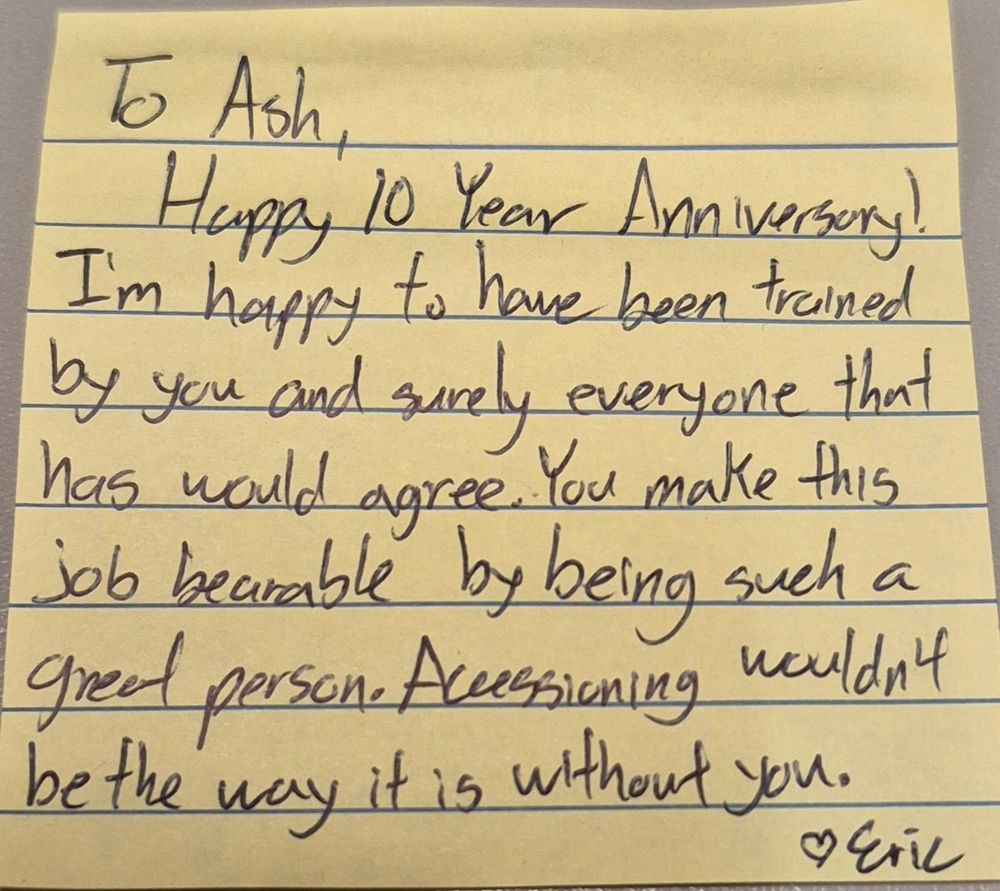 To Ash,
Happy 10 Year Anniversary!
I'm happy to have been trained
by you and surely everyone that
has would agree. You make this
job bearable by being such a
great person. Accessioning wouldn't
be the way it is without you.
♡ Eric